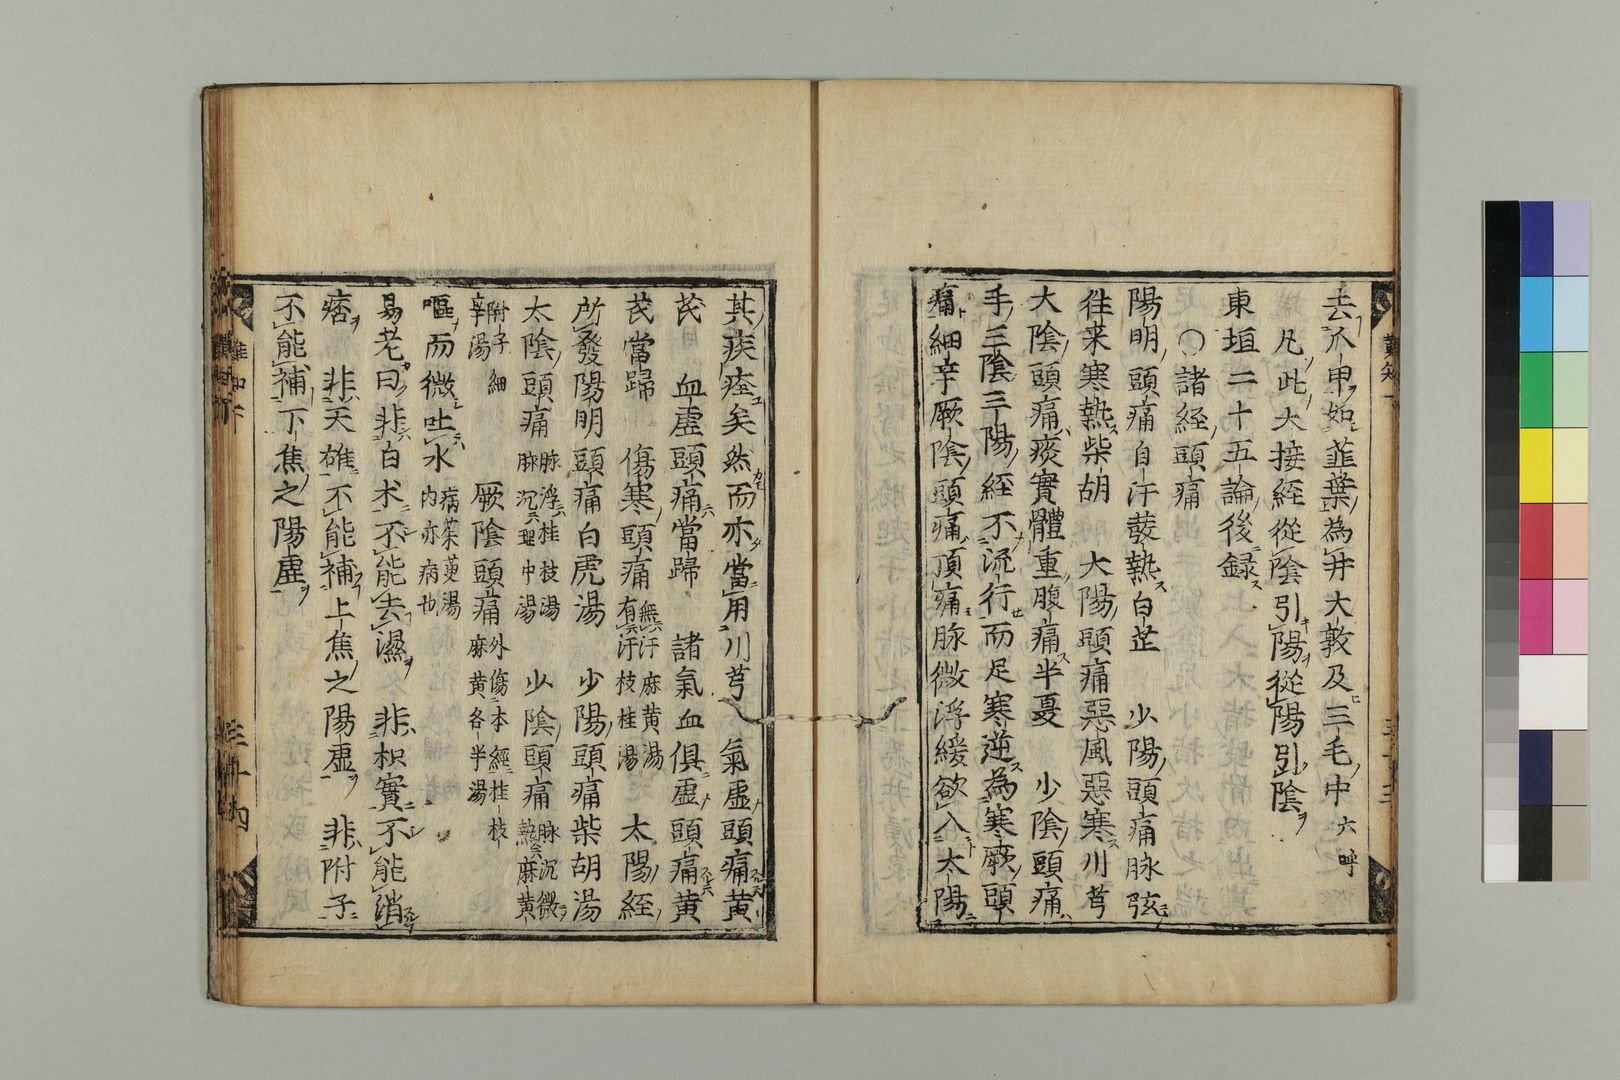 去爪甲如韮葉為井大敦及三毛中六呼
凡此大接經從陰引陽從陽引陰
東垣二十五論後録
〇諸經頭痛
陽明頭痛自汗發熱白芷　少陽頭痛脉弦
往来寒熱柴胡　大陽頭痛惡風惡寒川芎
大陰頭痛痰實體重腹痛半夏　少陰頭痛
手三陰三陽經不流行而足寒逆為寒厥頭
痛細辛厥陰頭痛頂痛脉微浮緩欲入太陽
其疾痊矣然而亦當用川芎　氣虚頭痛黄
芪　血虚頭痛當歸　諸氣血俱虚頭痛黄
芪當歸　傷寒頭痛無汗麻黄湯有汗桂枝湯　太陽經
所發陽明頭痛白虎湯　少陽頭痛柴胡湯
太陰頭痛脉浮桂枝湯脉沉理中湯　少陰頭痛脉沉微熱麻黄
附子細辛湯　厥陰頭痛外傷本經桂枝麻黄各半湯
嘔而微吐水病茱萸湯内亦病也
易老曰非白术不能去濕　非枳實不能消
痞　非天雄不能補上焦之陽虚　非附子
不能補下焦之陽虚